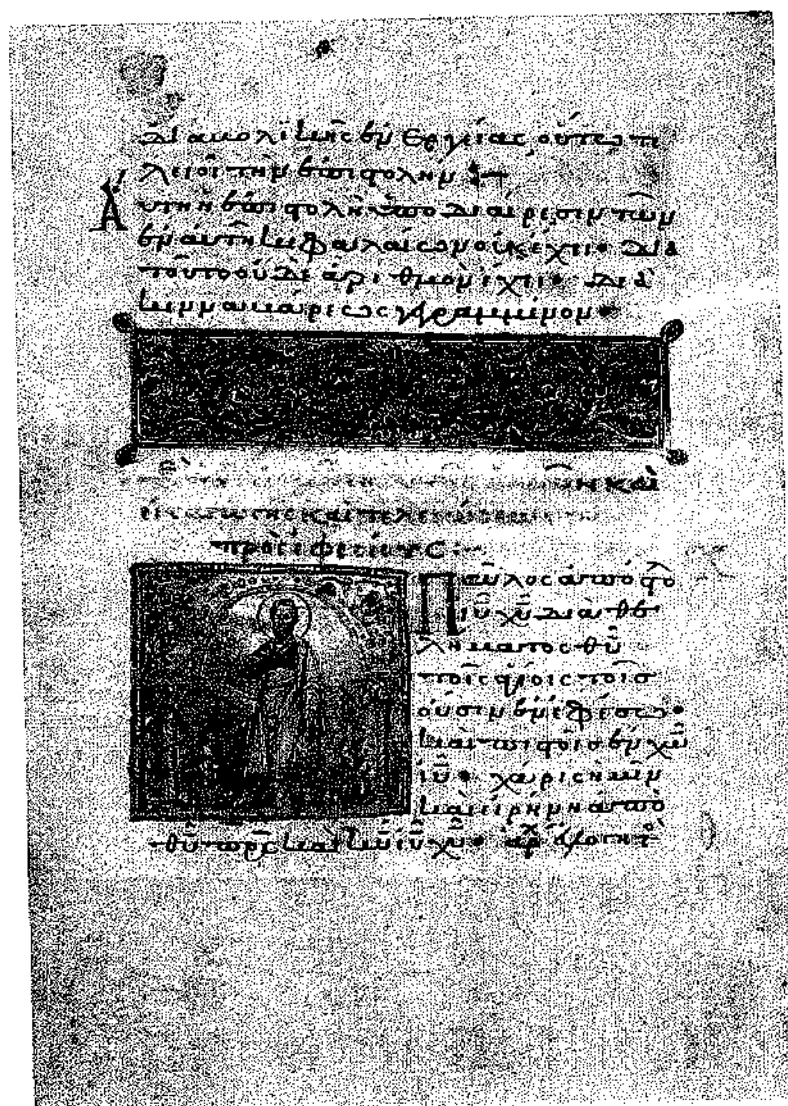 διαβολϊκῆς ἐνεργείας οὕτω τε
λειοῖ τὴν ἐπιστολήν :~
Αὕτη ἡ ἐπιστολὴ ὑποδιαίρεσιν τῶν
ἐν αὐτῆ κεφαλαίων οὐκ ἔχει· διὰ
τοῦτο οὐδὲ ἀριθμὸν ἔχει· διὰ
κινναβάρεως γραμμένον·
καὶ
καὶ
πρὸς ἐφεσίους :~
Παῦλος ἀπόστο
ιῦ χῦ διὰ θε
λήματος θῦ
τοῖς ἁγίοις τοῖσ
οὖσιν ἐν ἐφέσω·
καὶ πιστοῖς ἐν χῶ
ιῦ· χάρις ὑμῖν
καὶ εἰρήνη ἀπὸ
θῦ πρ̅ς καὶ κῦ ιῦ χῦ·